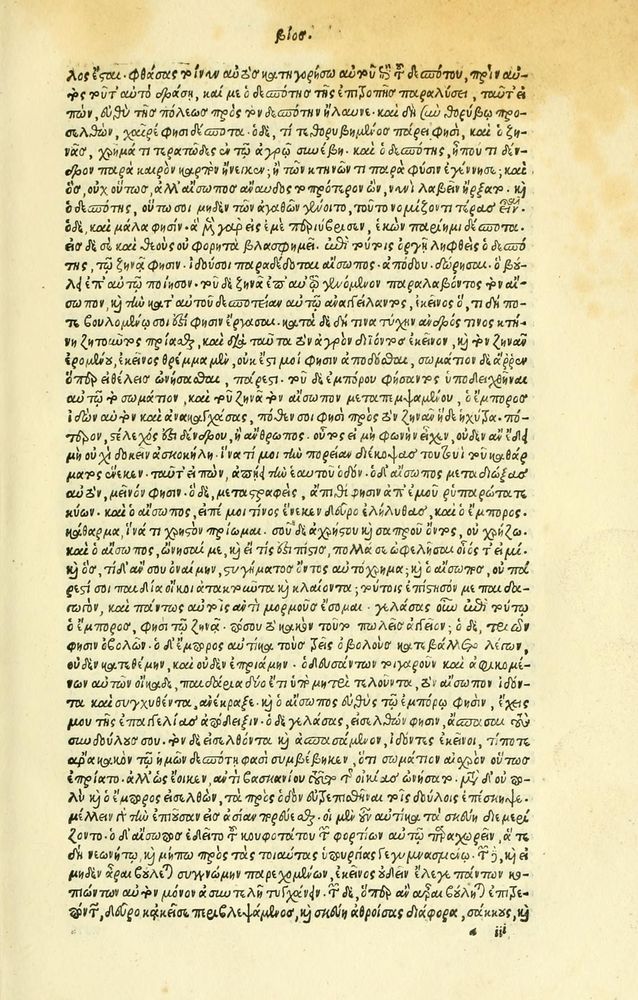 βίος.
λος ἔσται. φθάσας τοίνυν αὐτὸς κατηγορήσω αὐτοῦ ἐπὶ τοῦ δεσπότου, πρὶν αὐ-
τὸς τοῦτ' αὐτὸ δράσῃ, καί με ὁ δεσπότης τῆς ἐπιτροπῆς παραλύσει, ταῦτ' εἰ
πὼν, εὐθὺ τῆς πόλεως πρὸς τὸν δεσπότην ἤλαυνε. καὶ δὴ σὺν θορύβῳ προ-
σελθὼν, χαῖρέ φησι δέσποτα. ὁ δὲ, τί τεθορυβημένος πάρει φησὶ, καὶ ὁ ζη-
νᾶς, χρῆμά τι τερατῶδες ἐν τῷ ἀγρῷ συνέβη. καὶ ὁ δεσπότης, ἤπου τι δέν-
δρον παρὰ καιρὸν καρπὸν ἤνεικεν; ἢ τῶν κτηνῶν τι παρὰ φύσιν ἐγέννησε; καὶ
ὃς, οὐχ οὕτως, ἀλλ' αἴσωπος ἄναυδος τὸ πρότερον ὢν, νυνὶ λαβεῖν ἤρξατο. κỳ
ὁ δεσπότης, οὕτω σοι μηδὲν τῶν ἀγαθῶν γένοιτο, τοῦτο νομίζοντι τέρας εἶναι.
ὁ δὲ, καὶ μάλα φησίν. ἃ μὲν γὰρ εἰς ἐμὲ περιύβρισεν, ἑκὼν παρίημι δέσποτα.
εἰς δὲ σὲ καὶ θεοὺς οὐ φορητὰ βλασφημεῖ. ἐπὶ τούτοις ὀργῇ ληφθεὶς ὁ δεσπό
της, τῷ ζηνᾷ φησιν. ἰδού σοι παραδέδοται αἴσωπος. ἀπόδου. δώρησαι. ὃ βού-
λει ἐπ' αὐτῷ ποίησον. τοῦ δὲ ζηνᾶ ἐπ' αὐτῷ γενόμενον παραλαβόντος τὸν αἴ-
σωπον, καὶ τὴν κατ' αὐτοῦ δεσποτείαν αὐτῷ ἀναγγείλαντος, ἐκεῖνος ὅ, τι δή πο-
τε βουλομένῳ σοι ἐστί φησιν ἔργασαι. κατὰ δὲ δή τινα τύχην ἀνδρός τινος κτή-
νη ζητοῦντος πρίασθαι, καὶ διὰ ταῦτα τὸν ἀγρὸν διϊόντος ἐκεῖνον, καὶ τὸν ζηνᾶν
ἐρομένου, ἐκεῖνος θρέμμα μὲν, οὐκ ἔστι μοι φησὶν ἀποδόσθαι, σωμάτιον δὲ ἄρρεν
ὅπερ εἰ θέλεις ὠνήσασθαι, πάρεστι. τοῦ δὲ ἐμπόρου φήσαντος ὑποδειχθῆναι
αὐτῷ τὸ σωμάτιον, καὶ τοῦ ζηνᾶ τὸν αἴσωπον μεταπεμψαμένου, ὁ ἔμπορος
ἰδὼν αὐτὸν καὶ ἀνακαγχάσας, πόθεν σοι φησὶ πρὸς τὸν ζηνᾶν ἥδε ἡ χύτρα. πό-
τερον, στέλεχός ἐστι δένδρου, ἢ ἄνθρωπος. οὗτος εἰ μὴ φωνὴν εἶχεν, οὐδὲν ἂν ἐδό-
μην οὐχὶ δοκεῖν ἀσκὸν κήλη. ἵνα τί μοι τὴν πορείαν διέκοψας τουτουὶ τοῦ καθάρ
ματος ἕνεκεν. ταῦτ' εἰπὼν, ἀπῄει τὴν ἑαυτοῦ ὁδόν. ὁ δ' αἴσωπος μεταδιώξας
αὐτὸν, μεῖνόν φησιν. ὁ δὲ, μεταστραφεὶς, ἄπιθί φησιν ἀπ' ἐμοῦ ῥυπαρώτατε
κύων. καὶ ὁ αἴσωπος, εἰπέ μοι τίνος ἕνεκεν δεῦρο ἐλήλυθας, καὶ ὁ ἔμπορος.
κάθαρμα, ἵνα τι χρηστὸν πρίωμαι. σοῦ δὲ ἀχρήστου καὶ σαπροῦ ὄντος, οὐ χρῄζω.
καὶ ὁ αἴσωπος, ὤνησαί με, καὶ εἴ τίς ἐστι πίστις, πολλά σε ὠφελῆσαι οἷός τ' εἰμί.
καὶ ὃς, τί δ' ἄν σου ὀναίμην, στυγήματος ὄντος αὐτόχρημα; καὶ ὁ αἴσωπος, οὐ πά
ρεστί σοι παιδία οἴκοι ἀτακτοῦντα καὶ κλαίοντα; τούτοις ἐπίστησόν με παιδα-
γωγὸν, καὶ πάντως αὐτοῖς ἀντὶ μορμοῦς ἔσομαι. γελάσας οὖν ἐπὶ τούτῳ
ὁ ἔμπορος, φησὶ τῷ ζηνᾷ. πόσου τὸ κακὸν τοῦτο πωλεῖς ἀγγεῖον; ὁ δὲ, τριῶν
φησιν ὀβολῶν. ὁ δ' ἔμπορος αὐτίκα τοὺς τρεῖς ὀβολοὺς κατεβάλλετο λέγων,
οὐδὲν κατεθέμην, καὶ οὐδὲν ἐπριάμην. ὁδευσάντων τοιγαροῦν καὶ ἀφικομέ-
νων αὐτῶν οἴκαδε, παιδάρια δύο ἔτι ὑπὸ μητρὶ τελοῦντα, τὸν αἴσωπον ἰδόν-
τα καὶ συγχυθέντα, ἀνέκραξε. καὶ ὁ αἴσωπος εὐθὺς τῷ ἐμπόρῳ φησιν, ἔχεις
μου τῆς ἐπαγγελίας ἀπόδειξιν. ὁ δὲ γελάσας, εἰσελθών φησιν, ἄσπασαι τοὺς
συνδούλους σου. τὸν δὲ εἰσελθόντα καὶ ἀσπασάμενον, ἰδόντες ἐκεῖνοι, τί ποτε
ἄρα κακὸν τῷ ἡμῶν δεσπότῃ φασὶ συμβέβηκεν, ὅτι σωμάτιον αἰσχρὸν οὕτως
ἐπρίατο. ἀλλ' ὡς ἔοικεν, ἀντὶ βασκανίου τοῦτον τῆς οἰκίας ὠνήσατο. μετ' οὐ πο-
λὺ καὶ ὁ ἔμπορος εἰσελθὼν, τὰ πρὸς ὁδὸν εὐτρεπισθῆναι τοῖς δούλοις ἐπέσκηψε.
μέλλειν γὰρ τὴν ἐπιοῦσαν εἰς ἀσίαν πορεύεσθαι. οἱ μὲν οὖν αὐτίκα τὰ σκεύη διεμερί-
ζοντο. ὁ δ' αἴσωπος ἐδεῖτο τὸ κουφότατον τῶν φορτίων αὐτῷ παραχωρεῖν, ἅτε
δὴ νεωνήτῳ, καὶ μήπω πρὸς τὰς τοιαύτας ὑπουργίας γεγυμνασμένῳ. τῶν δὲ, καὶ εἰ
μηδὲν ἆραι βούλεται συγγνώμην παρεχομένων, ἐκεῖνος οὐ δεῖν ἔλεγε πάντων κο-
πιώντων αὐτὸν μόνον ἀσυντελῆ τυγχάνειν. τῶν δὲ, ὅπερ ἂν ἆραι βούληται ἐπιτρε-
πόντων, δεῦρο κἀκεῖσε περιβλεψάμενος, καὶ σκεύη ἀθροίσας διάφορα, σάκκους, καὶ
a iii